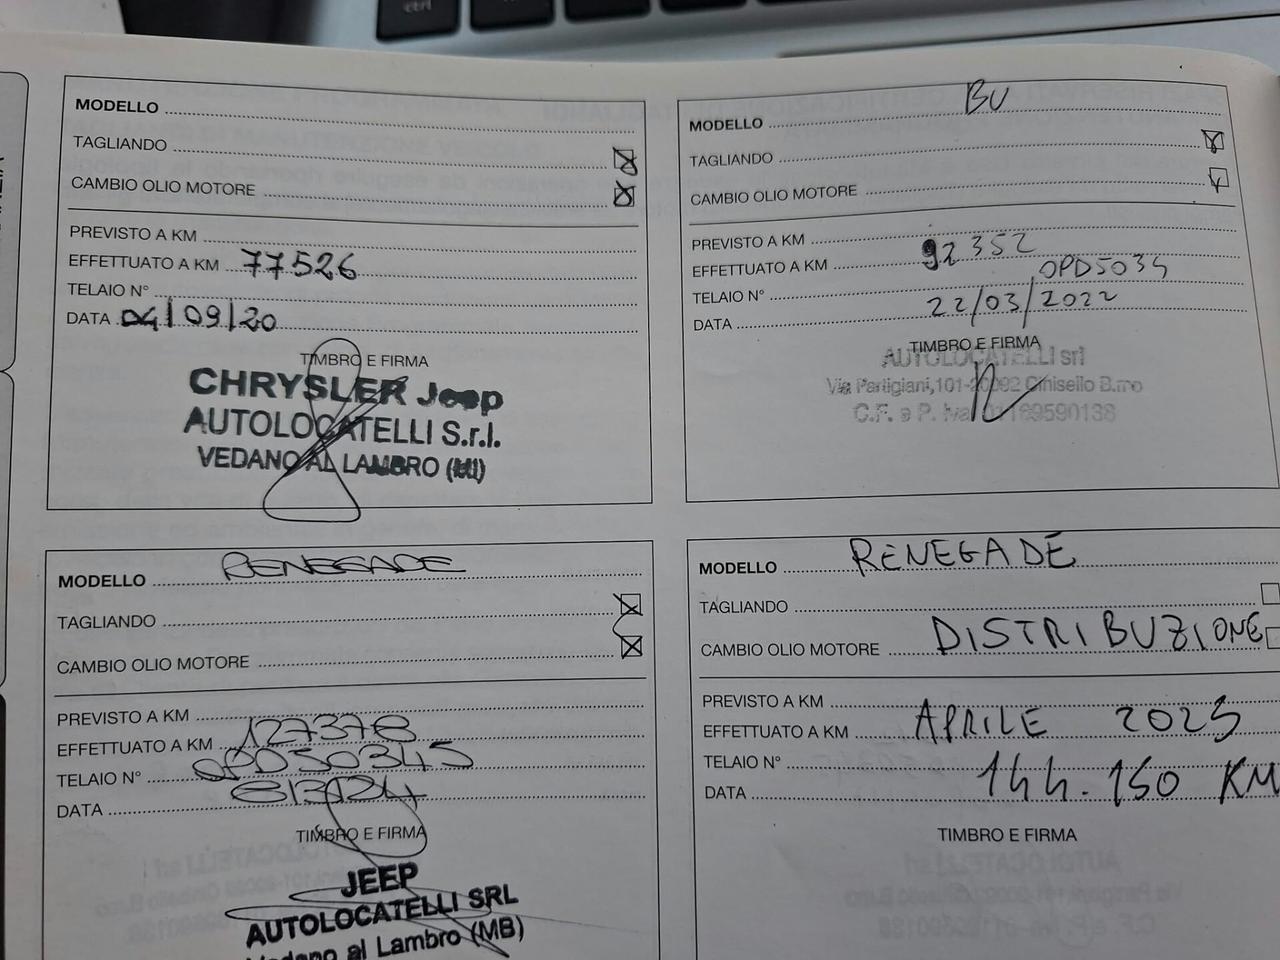 ctrl
MODELLO
TAGLIANDO
CAMBIO OLIO MOTORE
PREVISTO A KM
EFFETTUATO A KM 77526
TELAIO N°
DATA 04/09/20
TIMBRO E FIRMA
CHRYSLER Jeep
AUTOLOCATELLI S.r.l.
VEDANO AL LAMBRO (MI)
MODELLO BU
TAGLIANDO
CAMBIO OLIO MOTORE
PREVISTO A KM
EFFETTUATO A KM 92352
TELAIO N° OPD5034
DATA 22/03/2022
TIMBRO E FIRMA
AUTOLOCATELLI srl
Via Partigiani,101-20092 Cinisello B.mo
C.F. e P. Iva 01169590138
MODELLO RENEGADE
TAGLIANDO
CAMBIO OLIO MOTORE
PREVISTO A KM
EFFETTUATO A KM 127378
TELAIO N° OPD50345
DATA
TIMBRO E FIRMA
JEEP
AUTOLOCATELLI SRL
Vedano al Lambro (MB)
MODELLO RENEGADE
TAGLIANDO
CAMBIO OLIO MOTORE DISTRIBUZIONE
PREVISTO A KM
EFFETTUATO A KM APRILE 2025
TELAIO N°
DATA 144.150 KM
TIMBRO E FIRMA